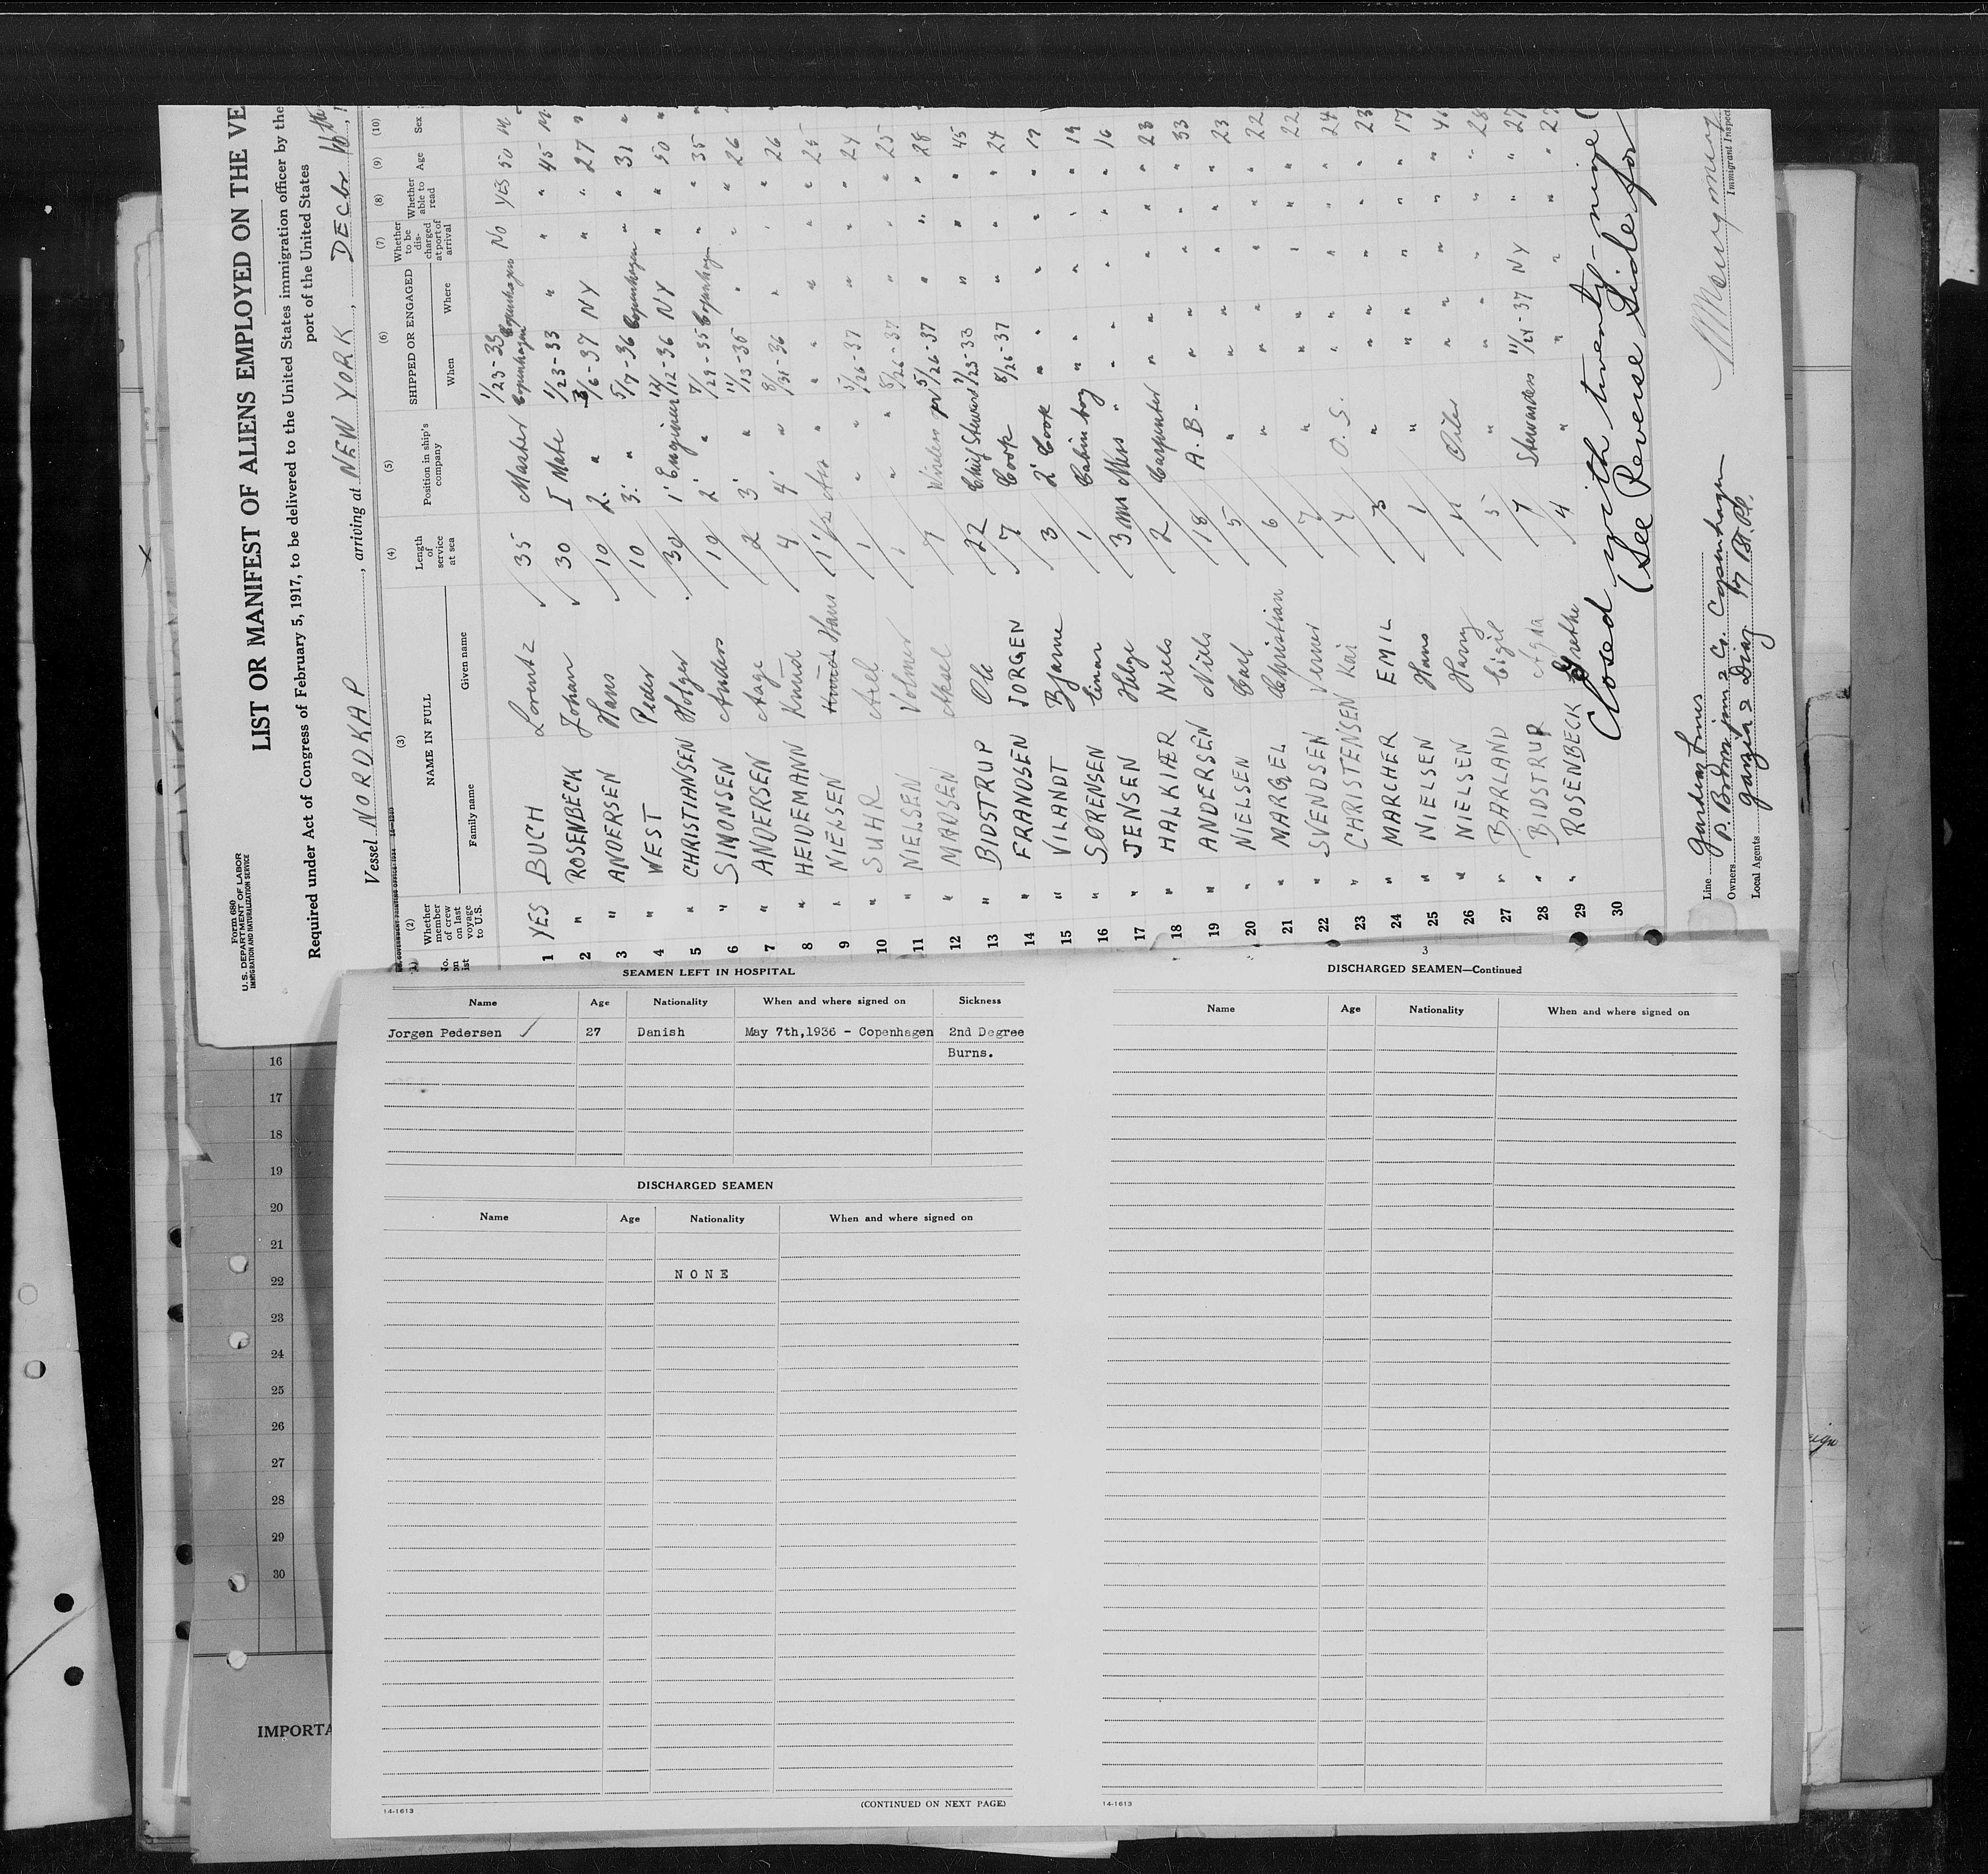 Form 680
U.S. DEPARTMENT OF LABOR
IMMIGRATION AND NATURALIZATION SERVICE
LIST OR MANIFEST OF ALIENS EMPLOYED ON THE VE
Required under Act of Congress of February 5, 1917, to be delivered to the United States immigration officer by the
port of the United States
Vessel NORDKAP, arriving at NEW YORK, DECbr 16th,
(2) (3) (4) (5) (6) (7) (8) (9) (10)
No. on list Whether member of crew on last voyage to U.S. NAME IN FULL Family name Given name Length of service at sea Position in ship's company SHIPPED OR ENGAGED When Where Whether to be discharged at port of arrival Whether able to read Age Sex
1 YES BUCH Lorentz 35 Master 1/23-33 Copenhagen No YES 50 M
2 " ROSENBECK Johan 30 I Mate 1/23-33 " " " 45 M
3 " ANDERSEN Hans 10 2. " 3/6-37 NY " " 27 "
4 " WEST Peder 10 3. " 5/7-36 Copenhagen " " 31 "
5 " CHRISTIANSEN Holger 30 1' Engineer 12/12-36 NY " " 50 "
6 " SIMONSEN Anders 10 2' " 7/29-35 Copenhagen " " 35 "
7 " ANDERSEN Aage 2 3' " 11/13-35 " " " 26
8 " HEIDEMANN Knud 4 4' " 8/31-36 " " " 26
9 " NIENSEN Knud Hans 1 1/2 Ass " " " " " 25
10 " SUHR Axel 1 " 5/26-37 " " " 24
11 " NIELSEN Volmer 1 " 8/26-37 " " " 25
12 " MADSEN Aksel 7 Wireless opr 5/26-37 " " " 28
13 " BIDSTRUP Ole 22 Chief Steward 1/23-33 " " " 45
14 " FRANDSEN JORGEN 7 Cook 8/26-37 " " " 24
15 " VILANDT Bjarne 3 2' Cook " " " " 17
16 " SØRENSEN Einar 1 Cabin boy " " " " 19
17 " JENSEN Helge 3 mn Mess " " " " " 16
18 " HALKIÆR Niels 2 Carpenter " " " " 23
19 " ANDERSEN Niels 18 A.B. " " " " 33
20 " NIELSEN Carl 5 " " " " " 23
21 " MARGEL Christian 6 " " " " " 22
22 " SVENDSEN Verner 7 " " " " " 22
23 " CHRISTENSEN Kai 4 O.S. " " " " 24
24 " MARCHER EMIL 3 " " " " " 23
25 " NIELSEN Hans 1 " " " " " 17
26 " NIELSEN Harry Oiler " " " "
27 " BARLAND Eigil 5 " " " " " 28
28 " BIDSTRUP Agda 7 Stewardess 11/24-37 NY " " 27
29 " ROSENBECK Grethe 4 " " " " " 27
30
Closed with twenty-nine (
(See Reverse Side for
Line
Owners Copenhagen
Local Agents Garcia & Diaz
Immigrant Inspect
16
17
18
19
20
21
22
23
24
25
26
27
28
29
30
IMPORTA
SEAMEN LEFT IN HOSPITAL
Name Age Nationality When and where signed on Sickness
Jorgen Pedersen 27 Danish May 7th,1936 - Copenhagen 2nd Degree
Burns.
DISCHARGED SEAMEN
Name Age Nationality When and where signed on
NONE
14-1613
(CONTINUED ON NEXT PAGE)
3
DISCHARGED SEAMEN—Continued
Name Age Nationality When and where signed on
14-1613